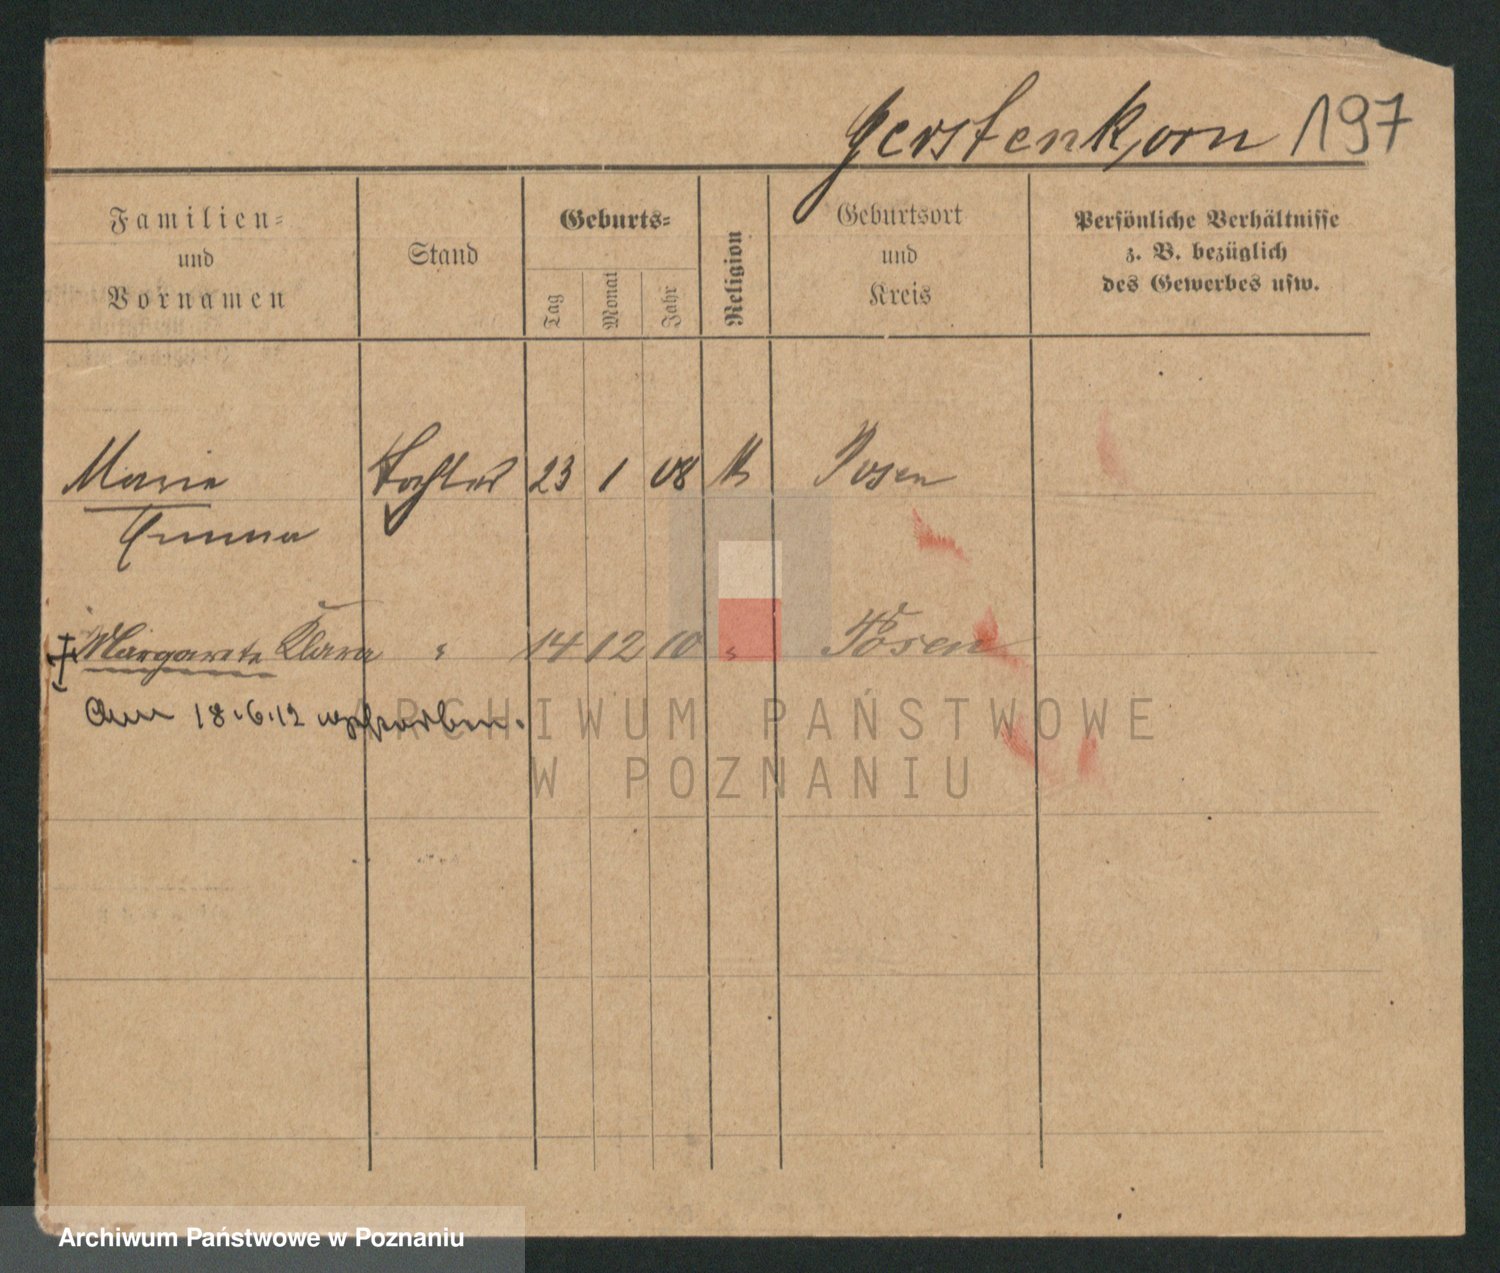 Gerstenkorn 197
Familien-
und
Vornamen
Stand
Geburts-
Tag
Monat
Jahr
Religion
Geburtsort
und
Kreis
Persönliche Verhältnisse
z. B. bezüglich
des Gewerbes usw.
Marie Tochter 23 1 08 Posen
Emma
† Margarete Klara " 14 12 10 " Posen
Am 18.6.12 verstorben.
ARCHIWUM PAŃSTWOWE
W POZNANIU
Archiwum Państwowe w Poznaniu